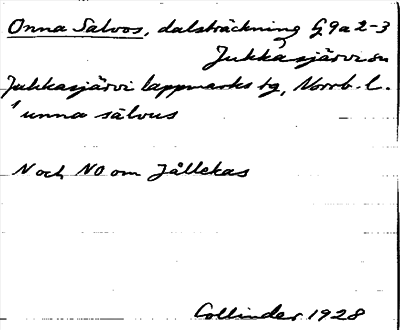 Onna Salvos, dalsträckning G9a2-3
Jukkasjärvi sn
Jukkasjärvi lappmarks tg, Norrb. l.
unna sälvus
N och NO om Jållekas
Collinder 1928